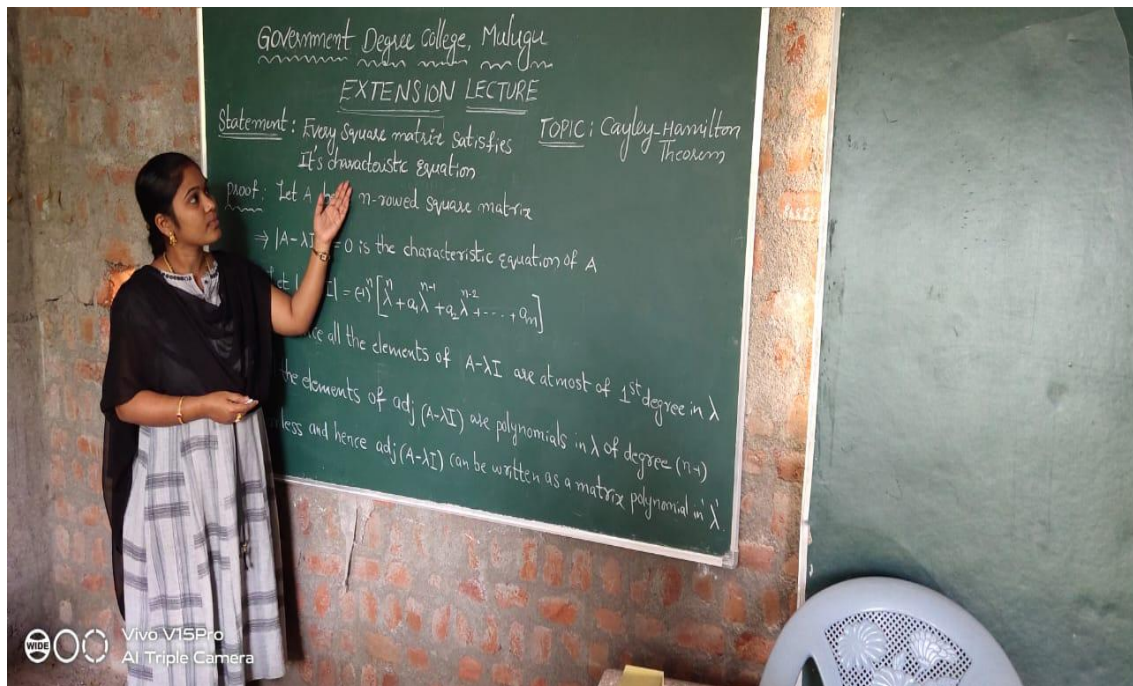 Government Degree College, Mulugu
EXTENSION LECTURE
Statement: Every square matrix satisfies
It's charactoistic Equation
TOPIC: Cayley-Hamilton
Theorem
Proof: Let A n-rowed square matrix
⇒ |A-λI = 0 is the characteristic equation of A
I| = (-1)ⁿ [λⁿ + a₁λⁿ⁻¹ + a₂λⁿ⁻² + ---- + aₙ]
all the elements of A-λI are atmost of 1st degree in λ
the elements of adj (A-λI) are polynomials in λ of degree (n-1)
less and hence adj (A-λI) can be written as a matrix polynomial in 'λ'.
WIDE
Vivo V15Pro
AI Triple Camera